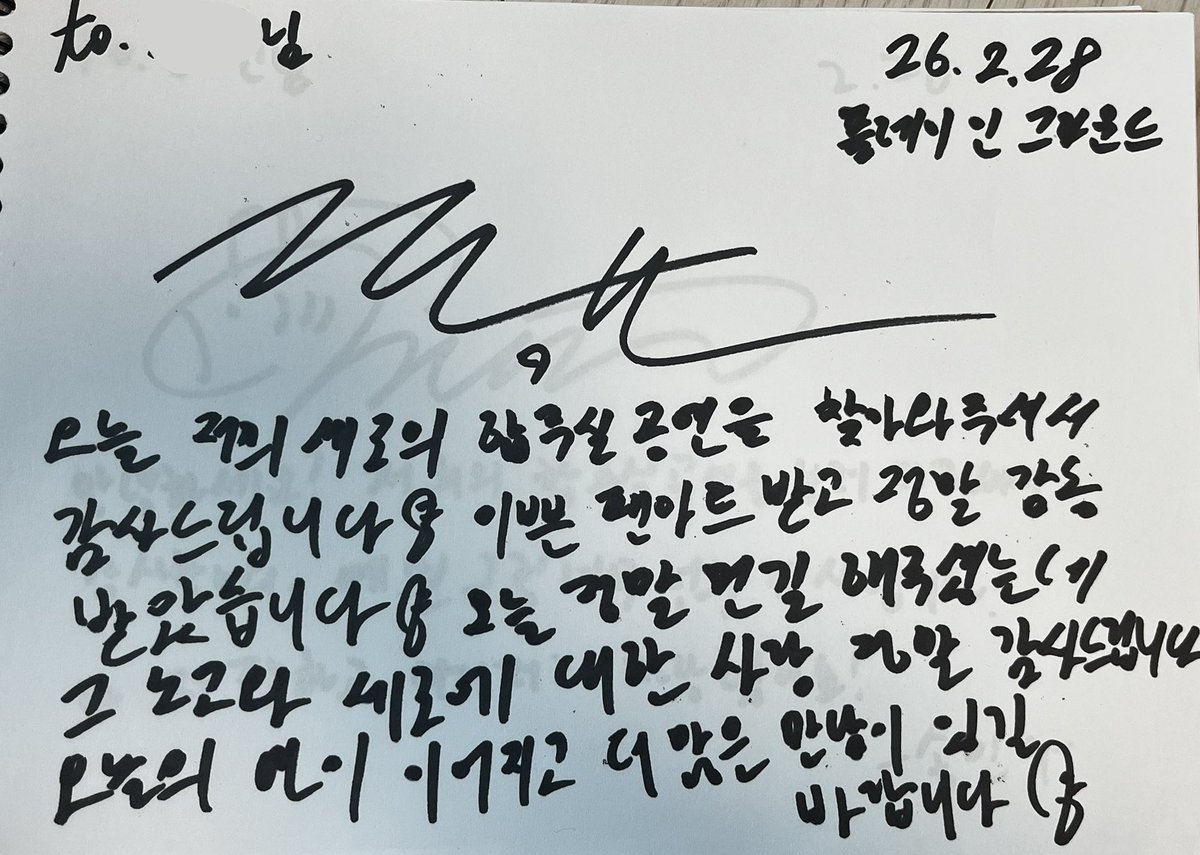 to. 님
26.2.28
플레이인그라운드
오늘 저희 세로의 합주실 공연을 찾아와주셔서
감사드립니다 이쁜 팬아트 받고 정말 감동
받았습니다 오늘 정말 먼길 해주셨는데
그 노고와 세로에 대한 사랑 정말 감사드립니다
오늘의 연이 이어지고 더 많은 만남이 있길
바랍니다